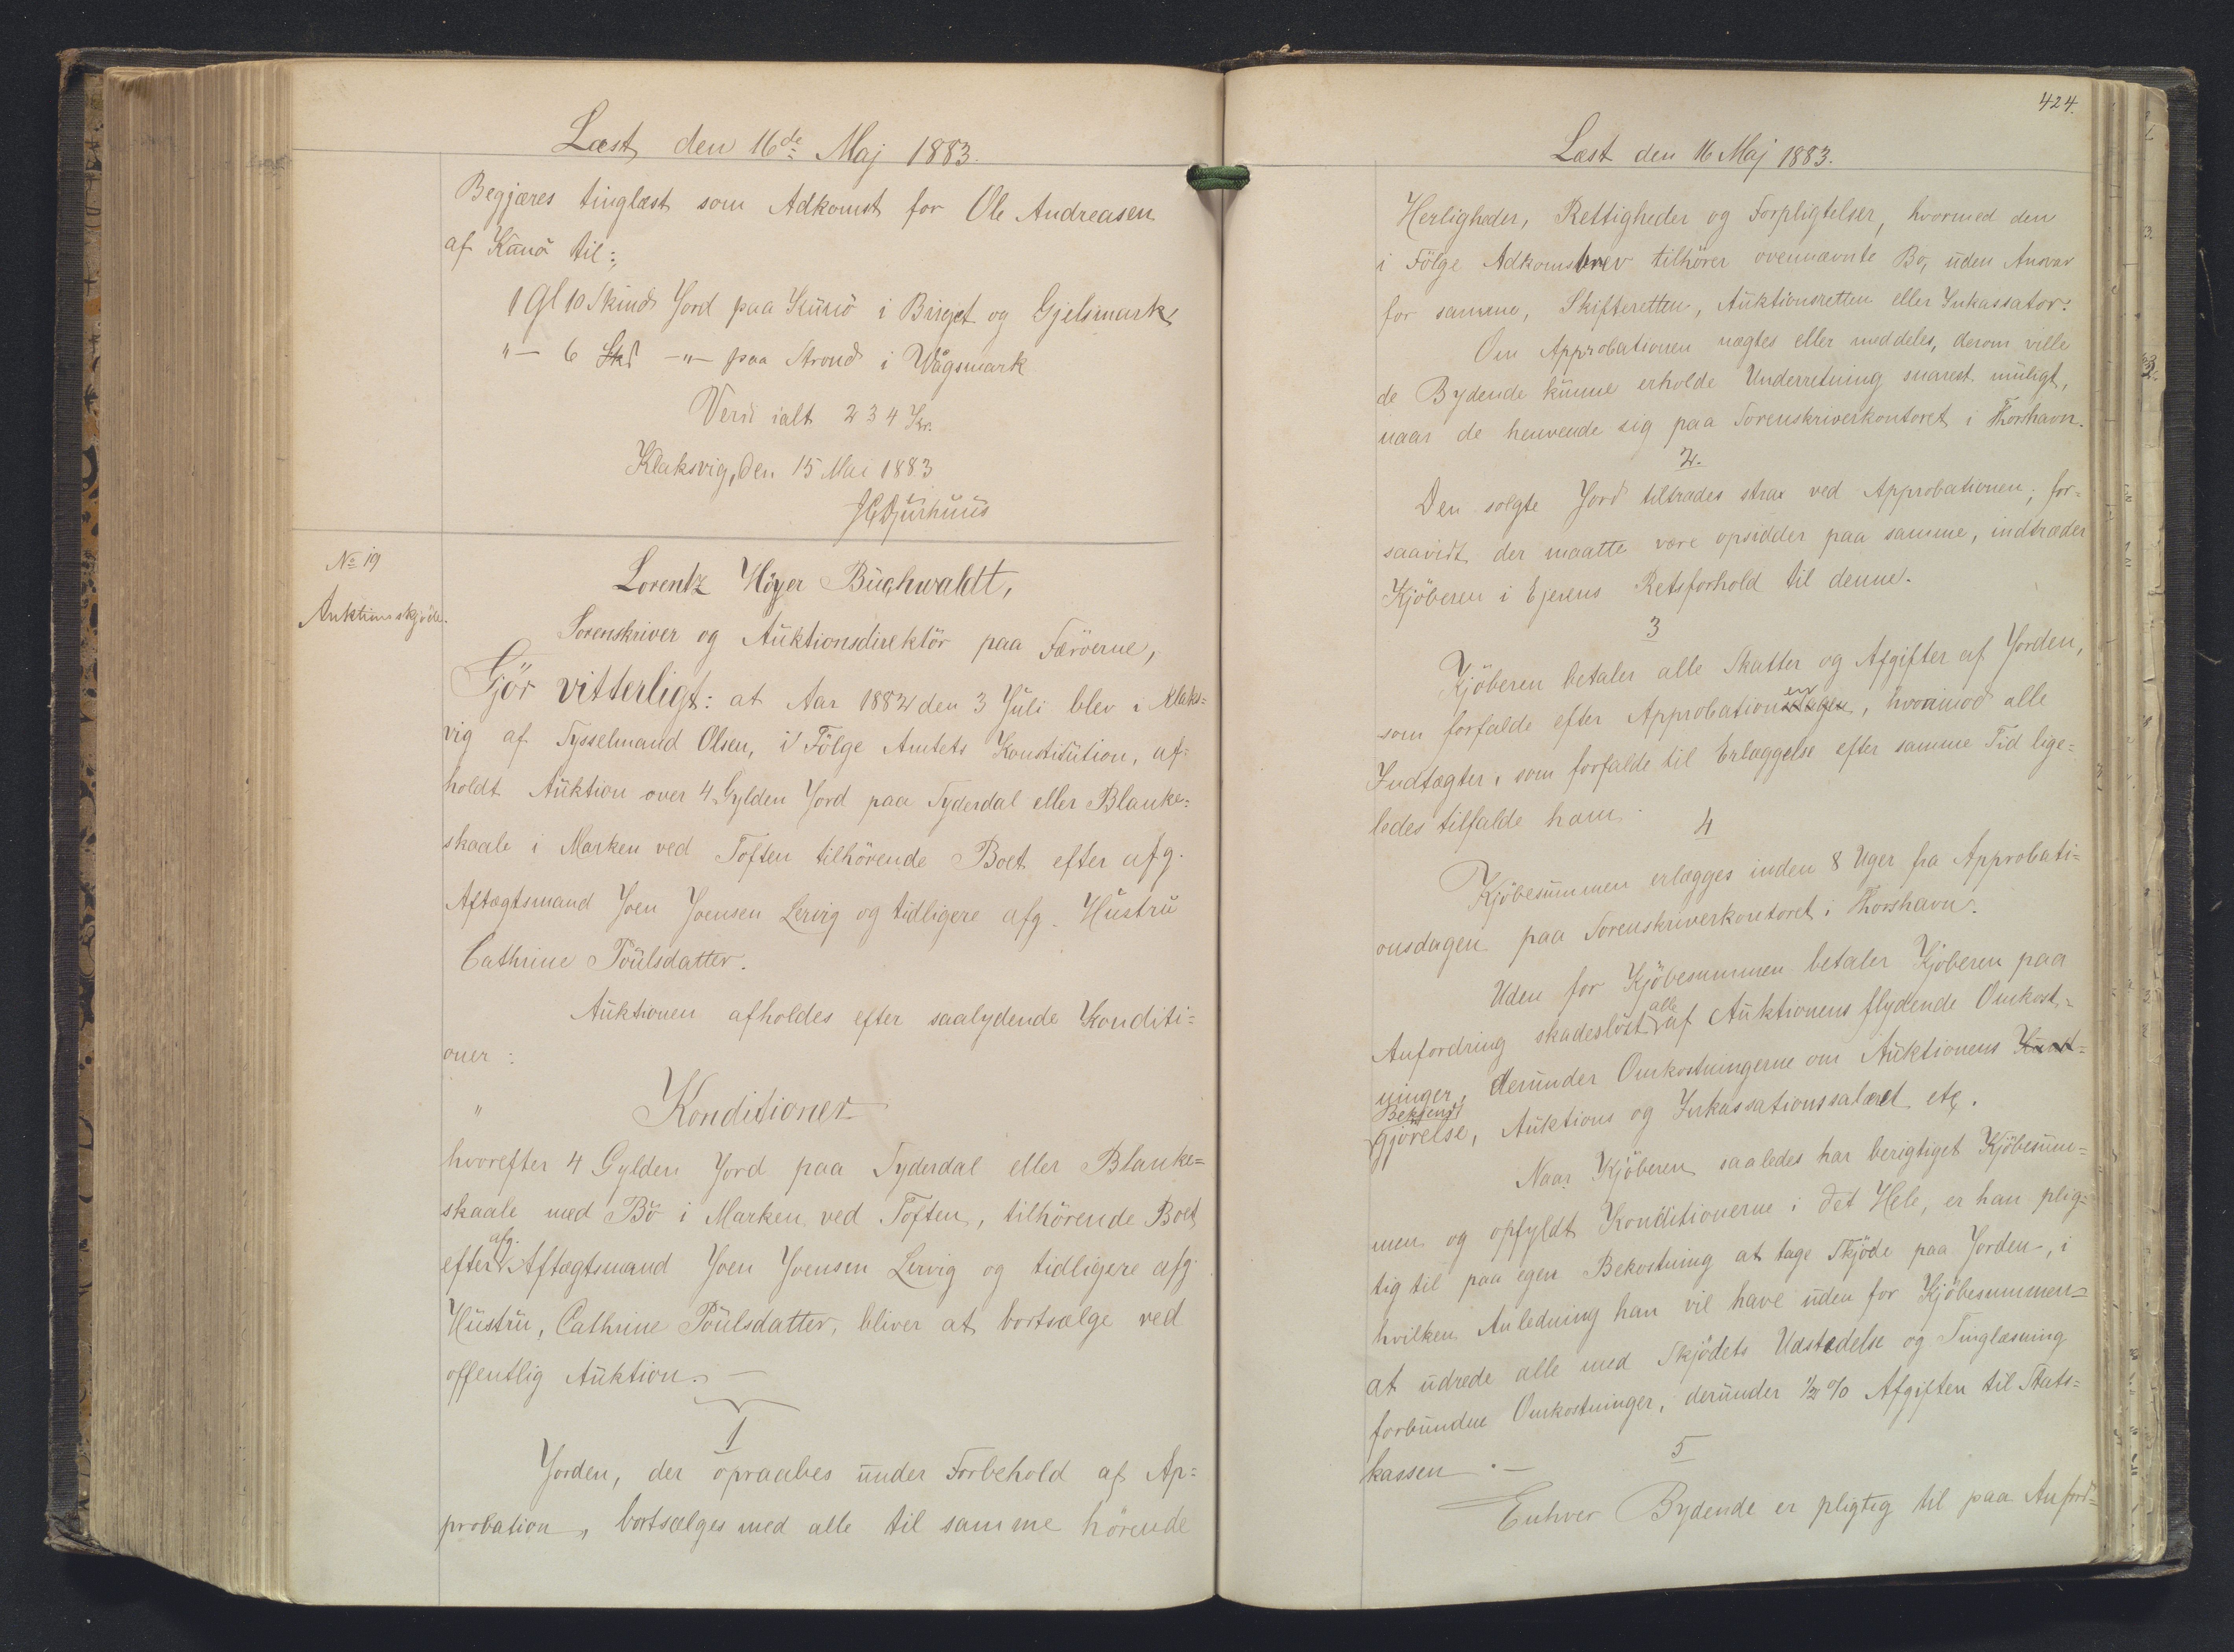 Læst den 16de Maj 1883.
Begjæres tinglæst som Adkomst for Ole Andreasen
af Kunö til:
1 Gl 10 Skind Jord paa Kunö i Birgjet og Gjelsmark
"— 6 Skd —"— paa Strond i Wågsmark
Verd ialt 234 Kr.
Klaksvig, den 15 Mai 1883
HDjurhuus
No 19
Auktionsskjöde.
Lorentz Höyer Buchwaldt,
Sorenskriver og Auktionsdirektör paa Færöerne,
Gjör vitterligt: at Aar 1882 den 3 Juli blev i Klaks=
vig af Sysselmand Olsen, i Fölge Amtets Konstitution, af=
holdt Auktion over 4 Gylden Jord paa Syderdal eller Blanke=
skaale i Marken ved Toften tilhörende Boet efter afg.
Aftægtsmand Joen Joensen Lervig og tidligere afg. Hustru
Cathrine Poulsdatter.
Auktionen afholdes efter saalydende Konditi=
oner:
" Konditioner
hvorefter 4 Gylden Jord paa Syderdal eller Blanke=
skaale med Bö i Marken ved Toften, tilhörende Boet
efter afg. Aftægtsmand Joen Joensen Lervig og tidligere afg
Hustru, Cathrine Poulsdatter, bliver at bortsælge ved
offentlig Auktion. —
1
Jorden, der opraabes under Forbehold af Ap=
probation, bortsælges med alle til samme hörende
424.
Læst den 16 Maj 1883.
Herligheder, Rettigheder og Forpligtelser, hvormed den
i Fölge Adkomsbrev tilhörer ovennævnte Bo, uden Ansvar
for samme, Skifteretten, Auktionsretten eller Inkassator.
Om Approbationen nægtes eller meddeles, derom ville
de Bydende kunne erholde Underretning snarest muligt,
naar de henvende sig paa Sorenskriverkontoret i Thorshavn.
2.
Den solgte Jord tiltrædes strax ved Approbationen; for=
saavidt der maatte være opsidder paa samme, indtræder
Kjöberen i Ejerens Retsforhold til denne.
3
Kjöberen betaler alle Skatter og Afgifter af Jorden,
som forfalde efter Approbationen, hvorimod alle
Indtægter, som forfalde til Erlæggelse efter samme Tid lige=
ledes tilfalde ham.
4
Kjöbesummen erlægges inden 8 Uger fra Approbati=
onsdagen paa Sorenskriverkontoret i Thorshavn.
Uden for Kjöbesummen betaler Kjöberen paa
Anfordring skadeslöst alle af Auktionens flydende Omkost=
ninger, derunder Omkostningerne om Auktionens Kunt=
Bekjendtgjörelse, Auktions og Inkassationssalæret etc.
Naar Kjöberen saaledes har berigtiget Kjöbesum=
men og opfyldt Konditionerne i det Hele, er han plig=
tig til paa egen Bekostning at tage Skjöde paa Jorden, i
hvilken Anledning han vil have uden for Kjöbesummen
at udrede alle med Skjödets Udstedelse og Tinglæsning
forbundne Omkostninger, derunder ½ % Afgiften til Stats=
kassen. —
5
Enhver Bydende er pligtig til paa Anford=